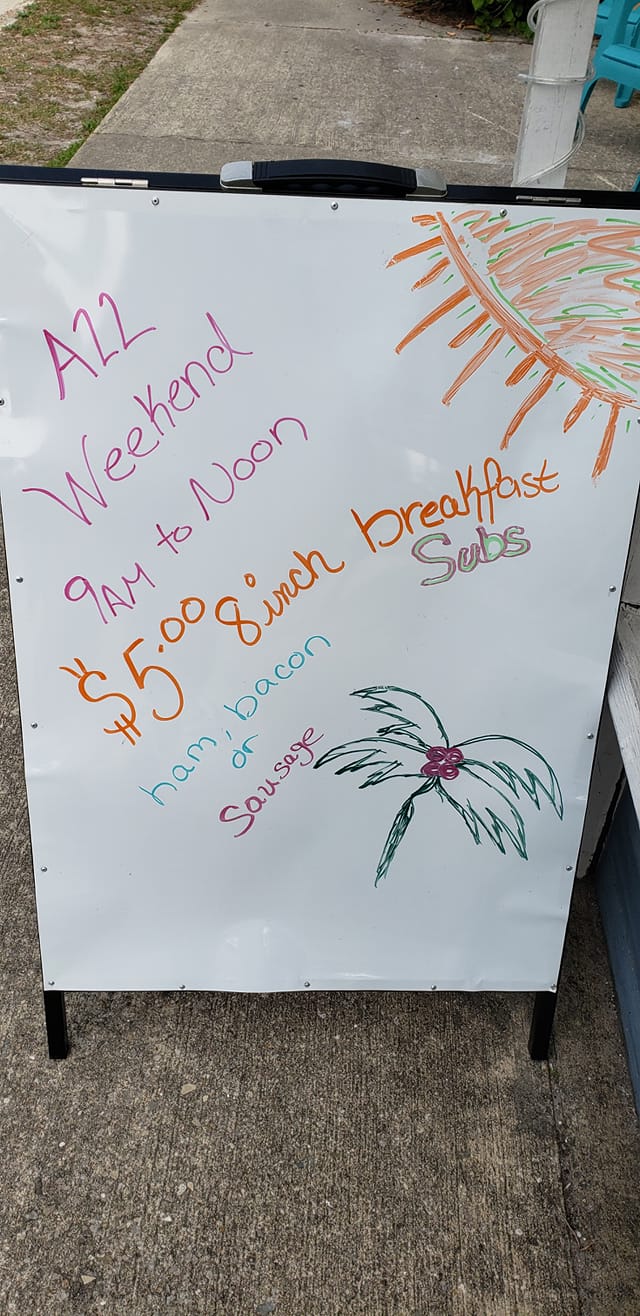 All
Weekend
9AM to Noon
$5.00 8 inch breakfast
Subs
ham, bacon
or
Sausage